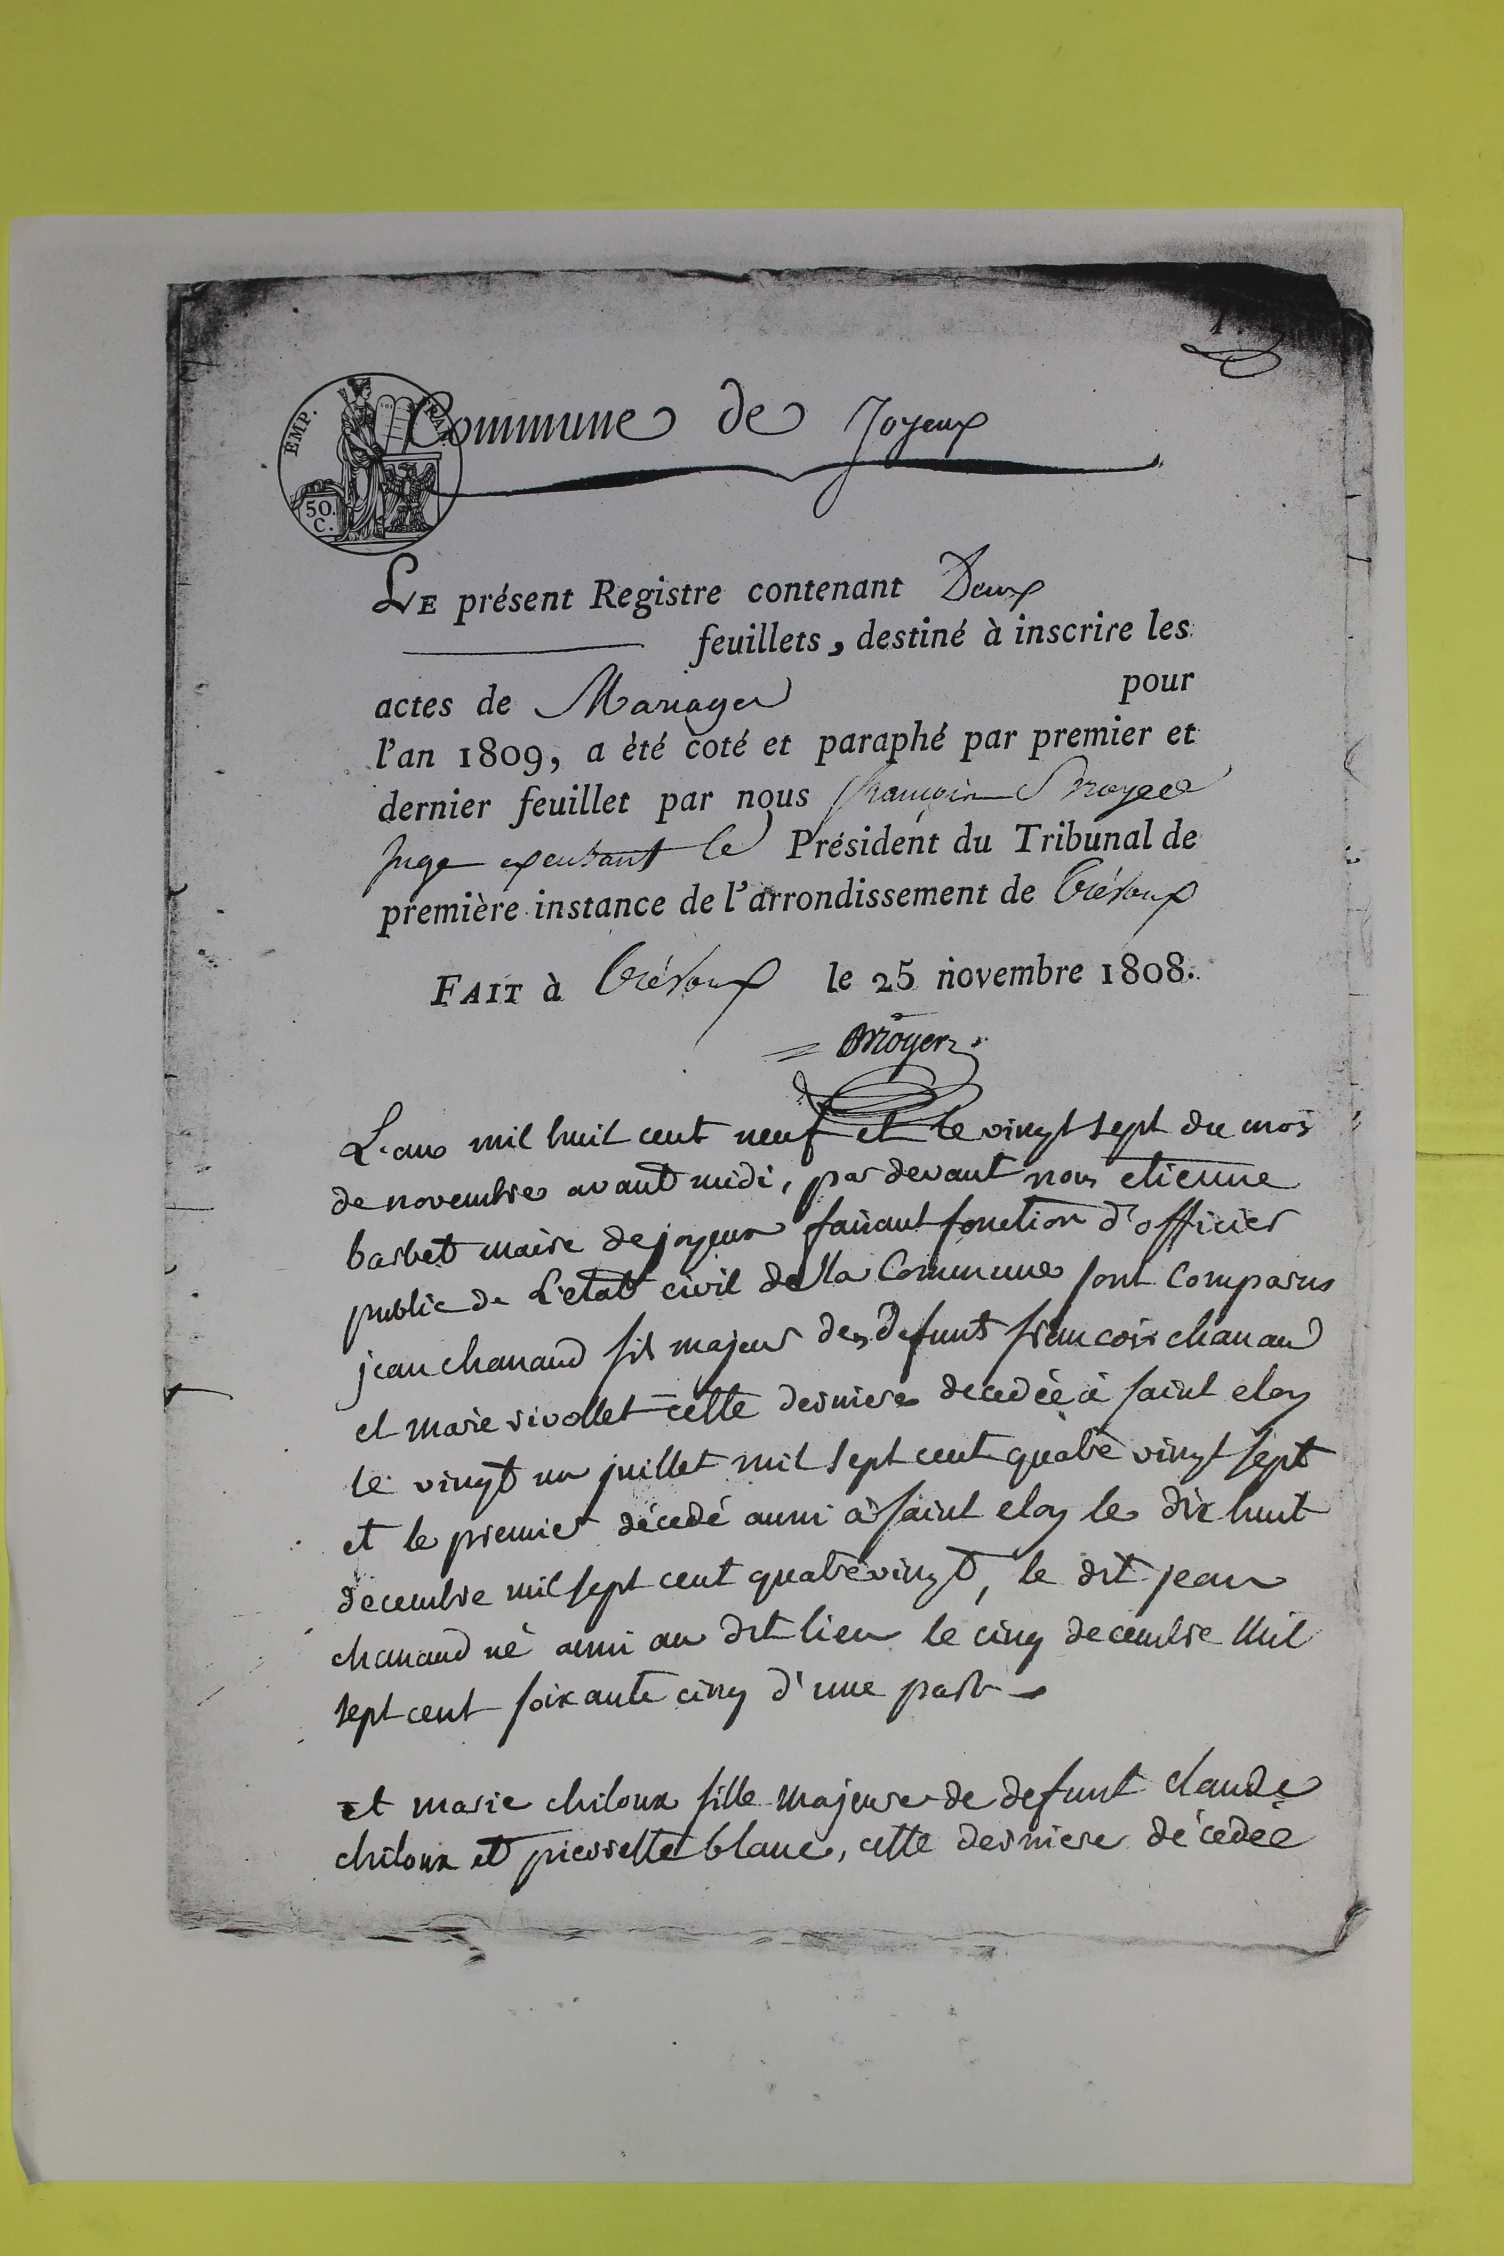 Commune de Joyeux
EMP. FRA.
50.
C.
LE présent Registre contenant Deux
feuillets, destiné à inscrire les
actes de Mariages pour
l'an 1809, a été coté et paraphé par premier et
dernier feuillet par nous françois
Juge le Président du Tribunal de
première instance de l'arrondissement de Trévoux
FAIT à Trévoux le 25 novembre 1808.
L'an mil huit cent neuf et le vingt sept du mois
de novembre avant midi, par devant nous etienne
barbet maire de joyeux faisant fonction d'officier
public de L'etat civil de la Commune sont Comparus
jean chanaud fils majeur des defunts francois chanaud
et marie rivollet cette derniere decedée à saint eloy
le vingt un juillet mil sept cent quatre vingt sept
et le premier décedé aussi à saint eloy le dix huit
decembre mil sept cent quatre vingt, le dit jean
chanaud né aussi au dit lieu le cinq decembre mil
sept cent soixante cinq d'une part
et marie chiloux fille majeure de defunt claude
chiloux et pierrette blanc, cette derniere décedée